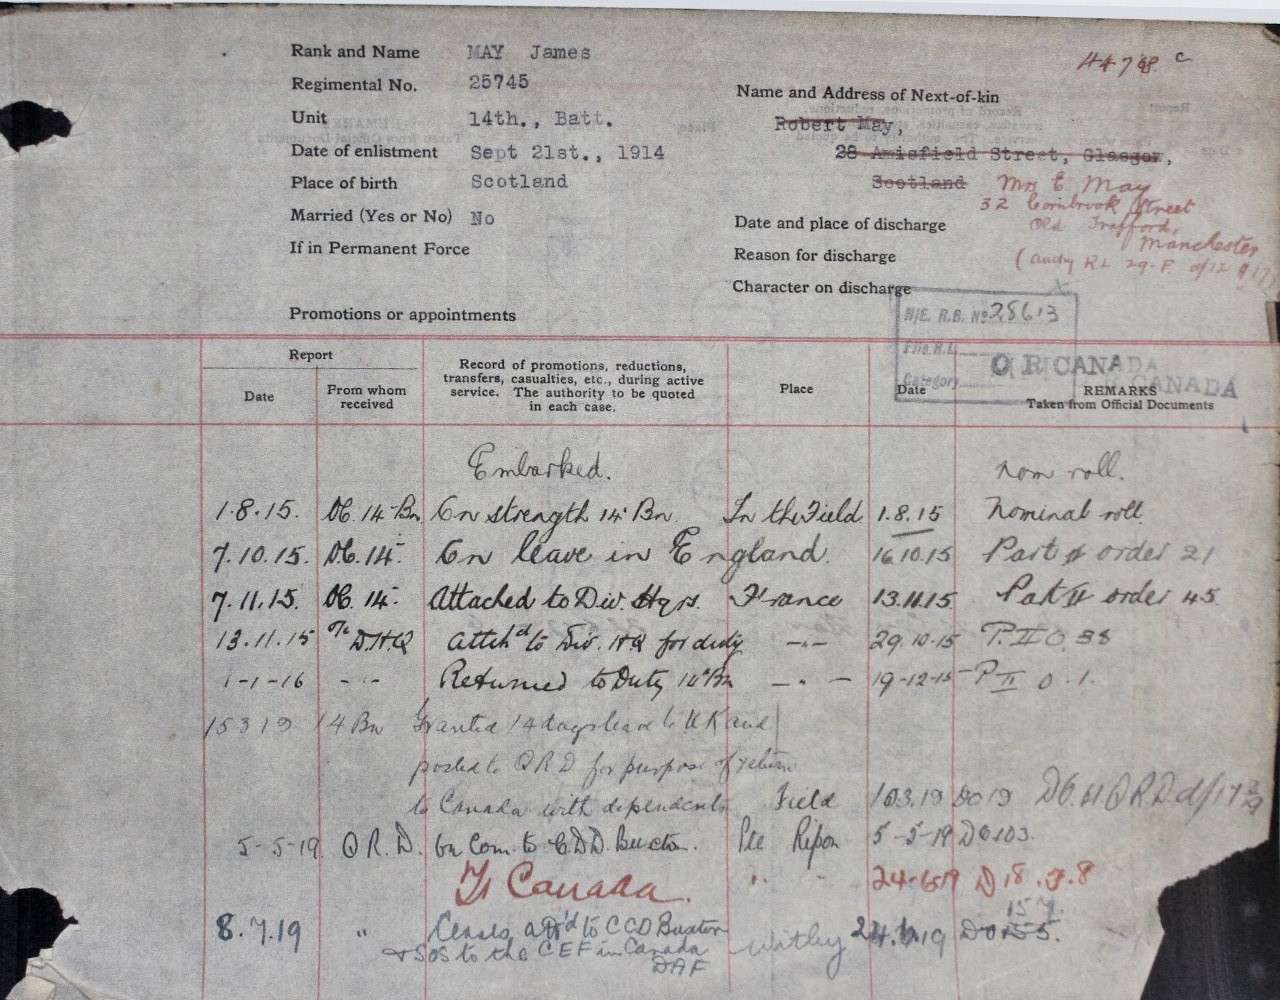 44768 c
Rank and Name MAY James
Regimental No. 25745
Unit 14th., Batt.
Date of enlistment Sept 21st., 1914
Place of birth Scotland
Married (Yes or No) No
If in Permanent Force
Promotions or appointments
Name and Address of Next-of-kin
Robert May,
28 Amisfield Street, Glasgow,
Scotland Mrs E May
32 Cornbrook Street
Old Trafford,
Manchester
Date and place of discharge
Reason for discharge
Character on discharge
N/E. R.B. No 28613
File R.L.
Category
O R CANADA
CANADA
Report
Date
From whom received
Record of promotions, reductions,
transfers, casualties, etc., during active
service. The authority to be quoted
in each case.
Place
Date
REMARKS
Taken from Official Documents
Embarked. Nom roll.
1.8.15. OC. 14 Bn On strength 14 Bn In the Field 1.8.15 Nominal roll
7.10.15. OC. 14. On leave in England. 16.10.15 Part order 21
7.11.15. OC. 14. Attached to Div. Hqrs. France 13.11.15 Part II order 45
13.11.15 D.H.Q attch'd to Div. HQ for duty -"- 29.10.15 P. II O. 38
1-1-16 -"- Returned to Duty 14 Bn -"- 19-12-15 P II O.1.
15 3 19 14 Bn Granted 14 days leave to UK and
posted to QRD for purpose of return
to Canada with dependents Field 3.19 DO 19
5-5-19. Q R. D. On Com. to CDD. Buxton. Ripon 5-5-19 DO 103.
To Canada. " " 24-6-19 D 18
8.7.19 " Ceases att'd to CCD Buxton
& SOS to the CEF in Canada Witley 24.6.19 DO 155. 157.
DAF